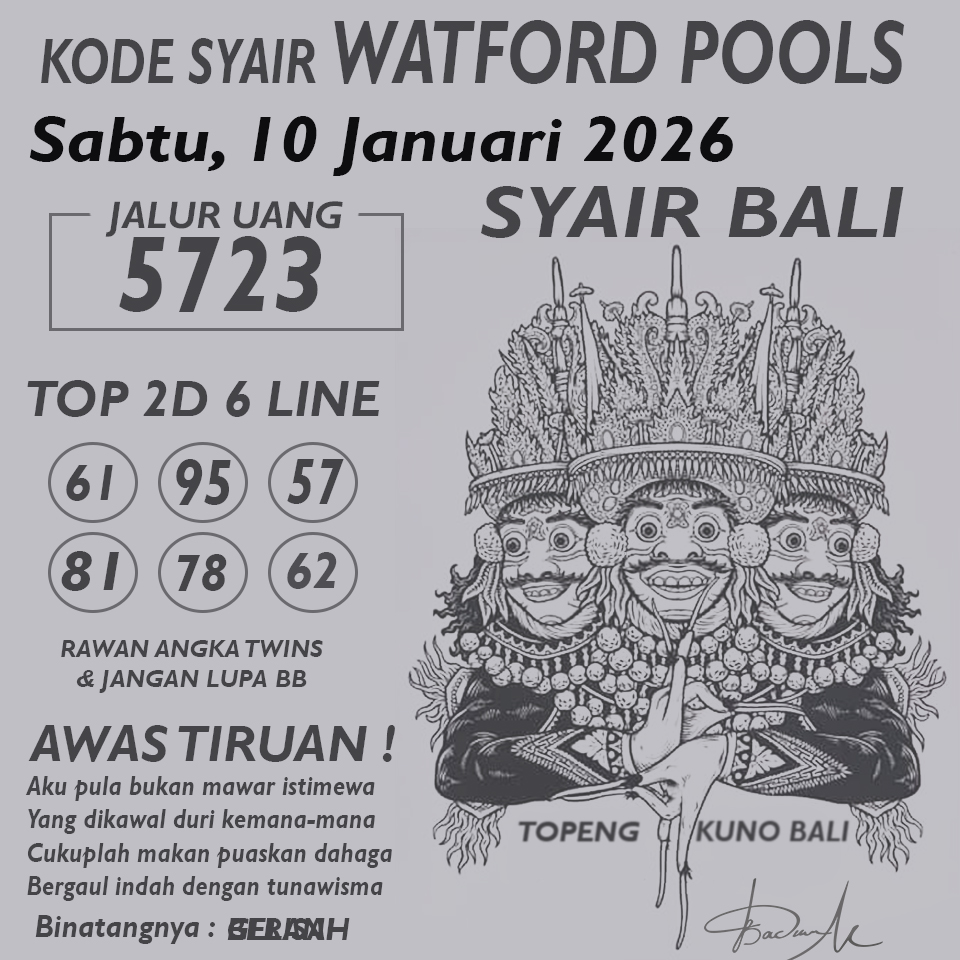 KODE SYAIR WATFORD POOLS
Sabtu, 10 Januari 2026
SYAIR BALI
JALUR UANG
5723
TOP 2D 6 LINE
61 95 57
81 78 62
RAWAN ANGKA TWINS
& JANGAN LUPA BB
AWAS TIRUAN !
Aku pula bukan mawar istimewa
Yang dikawal duri kemana-mana
Cukuplah makan puaskan dahaga
Bergaul indah dengan tunawisma
Binatangnya :
TOPENG KUNO BALI